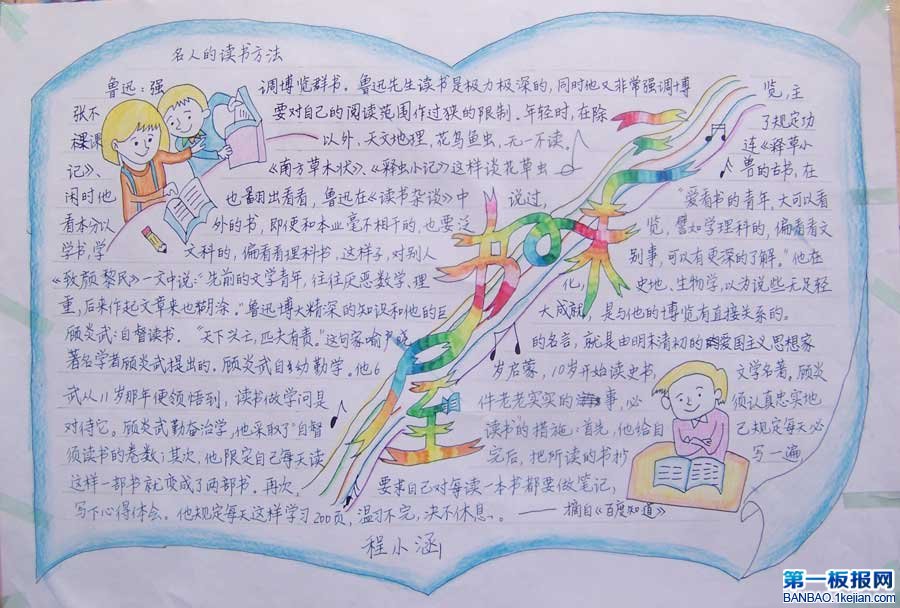 名人的读书方法
鲁迅:强 调博览群书。鲁迅先生读书是极力极深的,同时他又非常强调博 览,主
张不 要对自己的阅读范围作过狭的限制。年轻时,在除 了规定功
课 以外,天文地理,花鸟鱼虫,无一不读。 连《释草小
记》、 《南方草木状》、《释虫小记》这样谈花草虫 兽的古书,在
闲时他 也翻出看看,鲁迅在《读书杂谈》中 说过, “爱看书的青年,大可以看
看本分以 外的书,即便和本业毫不相干的,也要泛 览,譬如学理科的,偏看看文
学书,学 文科的,偏看看理科书,这样子,对别人 别事,可以有更深的了解。”他在
《致颜黎民》一文中说:“先前的文学青年,往往厌恶数学,理 化, 史地,生物学,以为说些无足轻
重,后来作起文章来也糊涂。”鲁迅博大精深的知识和他的巨 大成就,是与他的博览有直接关系的。
顾炎武:自督读书。“天下兴亡,匹夫有责。”这句家喻户晓 的名言,就是由明末清初的爱国主义思想家
著名学者顾炎武提出的。顾炎武自幼勤学。他6 岁启蒙,10岁开始读史书, 文学名著。顾炎
武从11岁那年便领悟到,读书做学问是 件老老实实的事,必 须认真忠实地
对待它。顾炎武勤奋治学,他采取了“自督 读书”的措施:首先,他给自 己规定每天必
须读书的卷数;其次,他限定自己每天读 完后,把所读的书抄 写一遍
这样一部书就变成了两部书。再次, 要求自己对每读一本书都要做笔记,
写下心得体会。他规定每天这样学习200页,温习不完,决不休息。——摘自《百度知道》
程小涵
第一板报网
BANBAO.1kejian.com